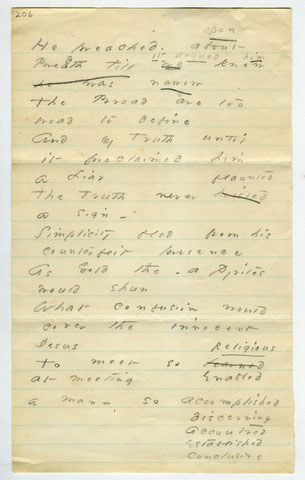 206
upon
He preached about
it argued him
Breadth till we knew
he was narrow
The Broad are too
broad to define
And of Truth until
it proclaimed him
a Liar flaunted
The Truth never hoisted
a sign -
Simplicity fled from his
counterfeit presence
As Gold the - a Pyrites
would shun
What confusion would
cover the innocent
Jesus Religious
To meet so learned
at meeting Enabled
a man - so accomplished
discerning
accoutred
established
conclusive